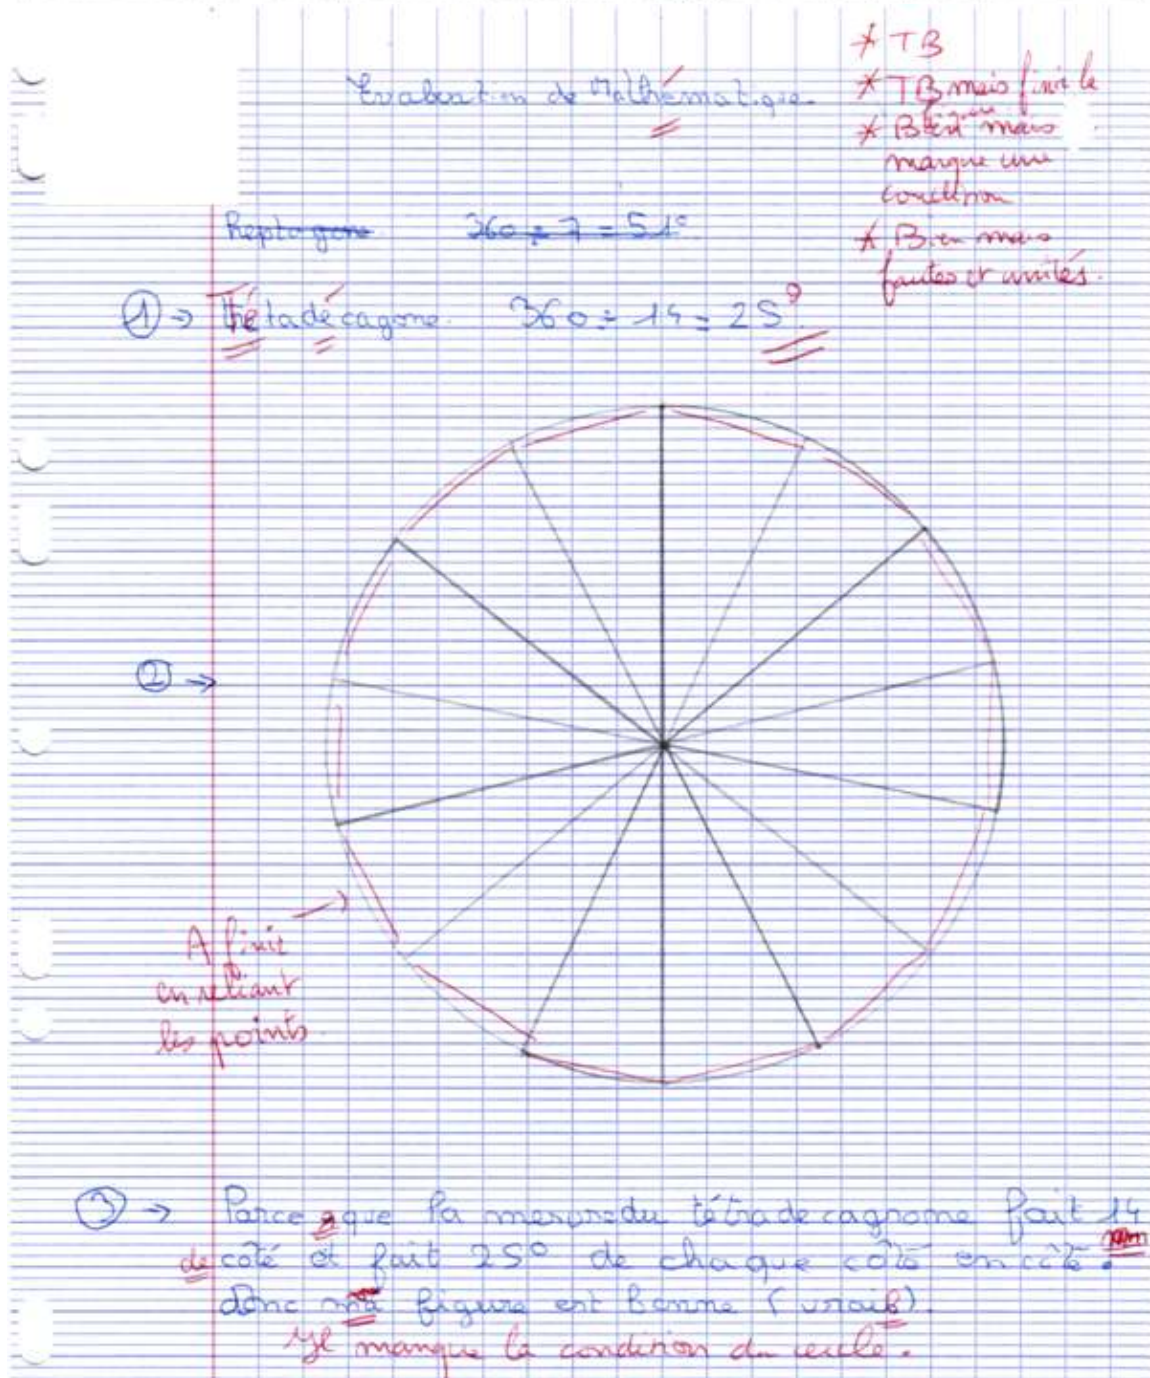 Evaluation de Mathématique.
* TB
* TB mais finir la
figure
* Bien mais
marque une
condition
* Bien mais
fautes et unités.
heptagone 360 ÷ 7 = 51°
① → Tétadécagone. 360 ÷ 14 = 25°
② →
A finir
en reliant
les points.
③ → Parce que la mesure du tétradecagnome fait 14
de coté et fait 25° de chaque côté en côté.
donc ma figure est bonne (vraie)
Il manque la condition du cercle.